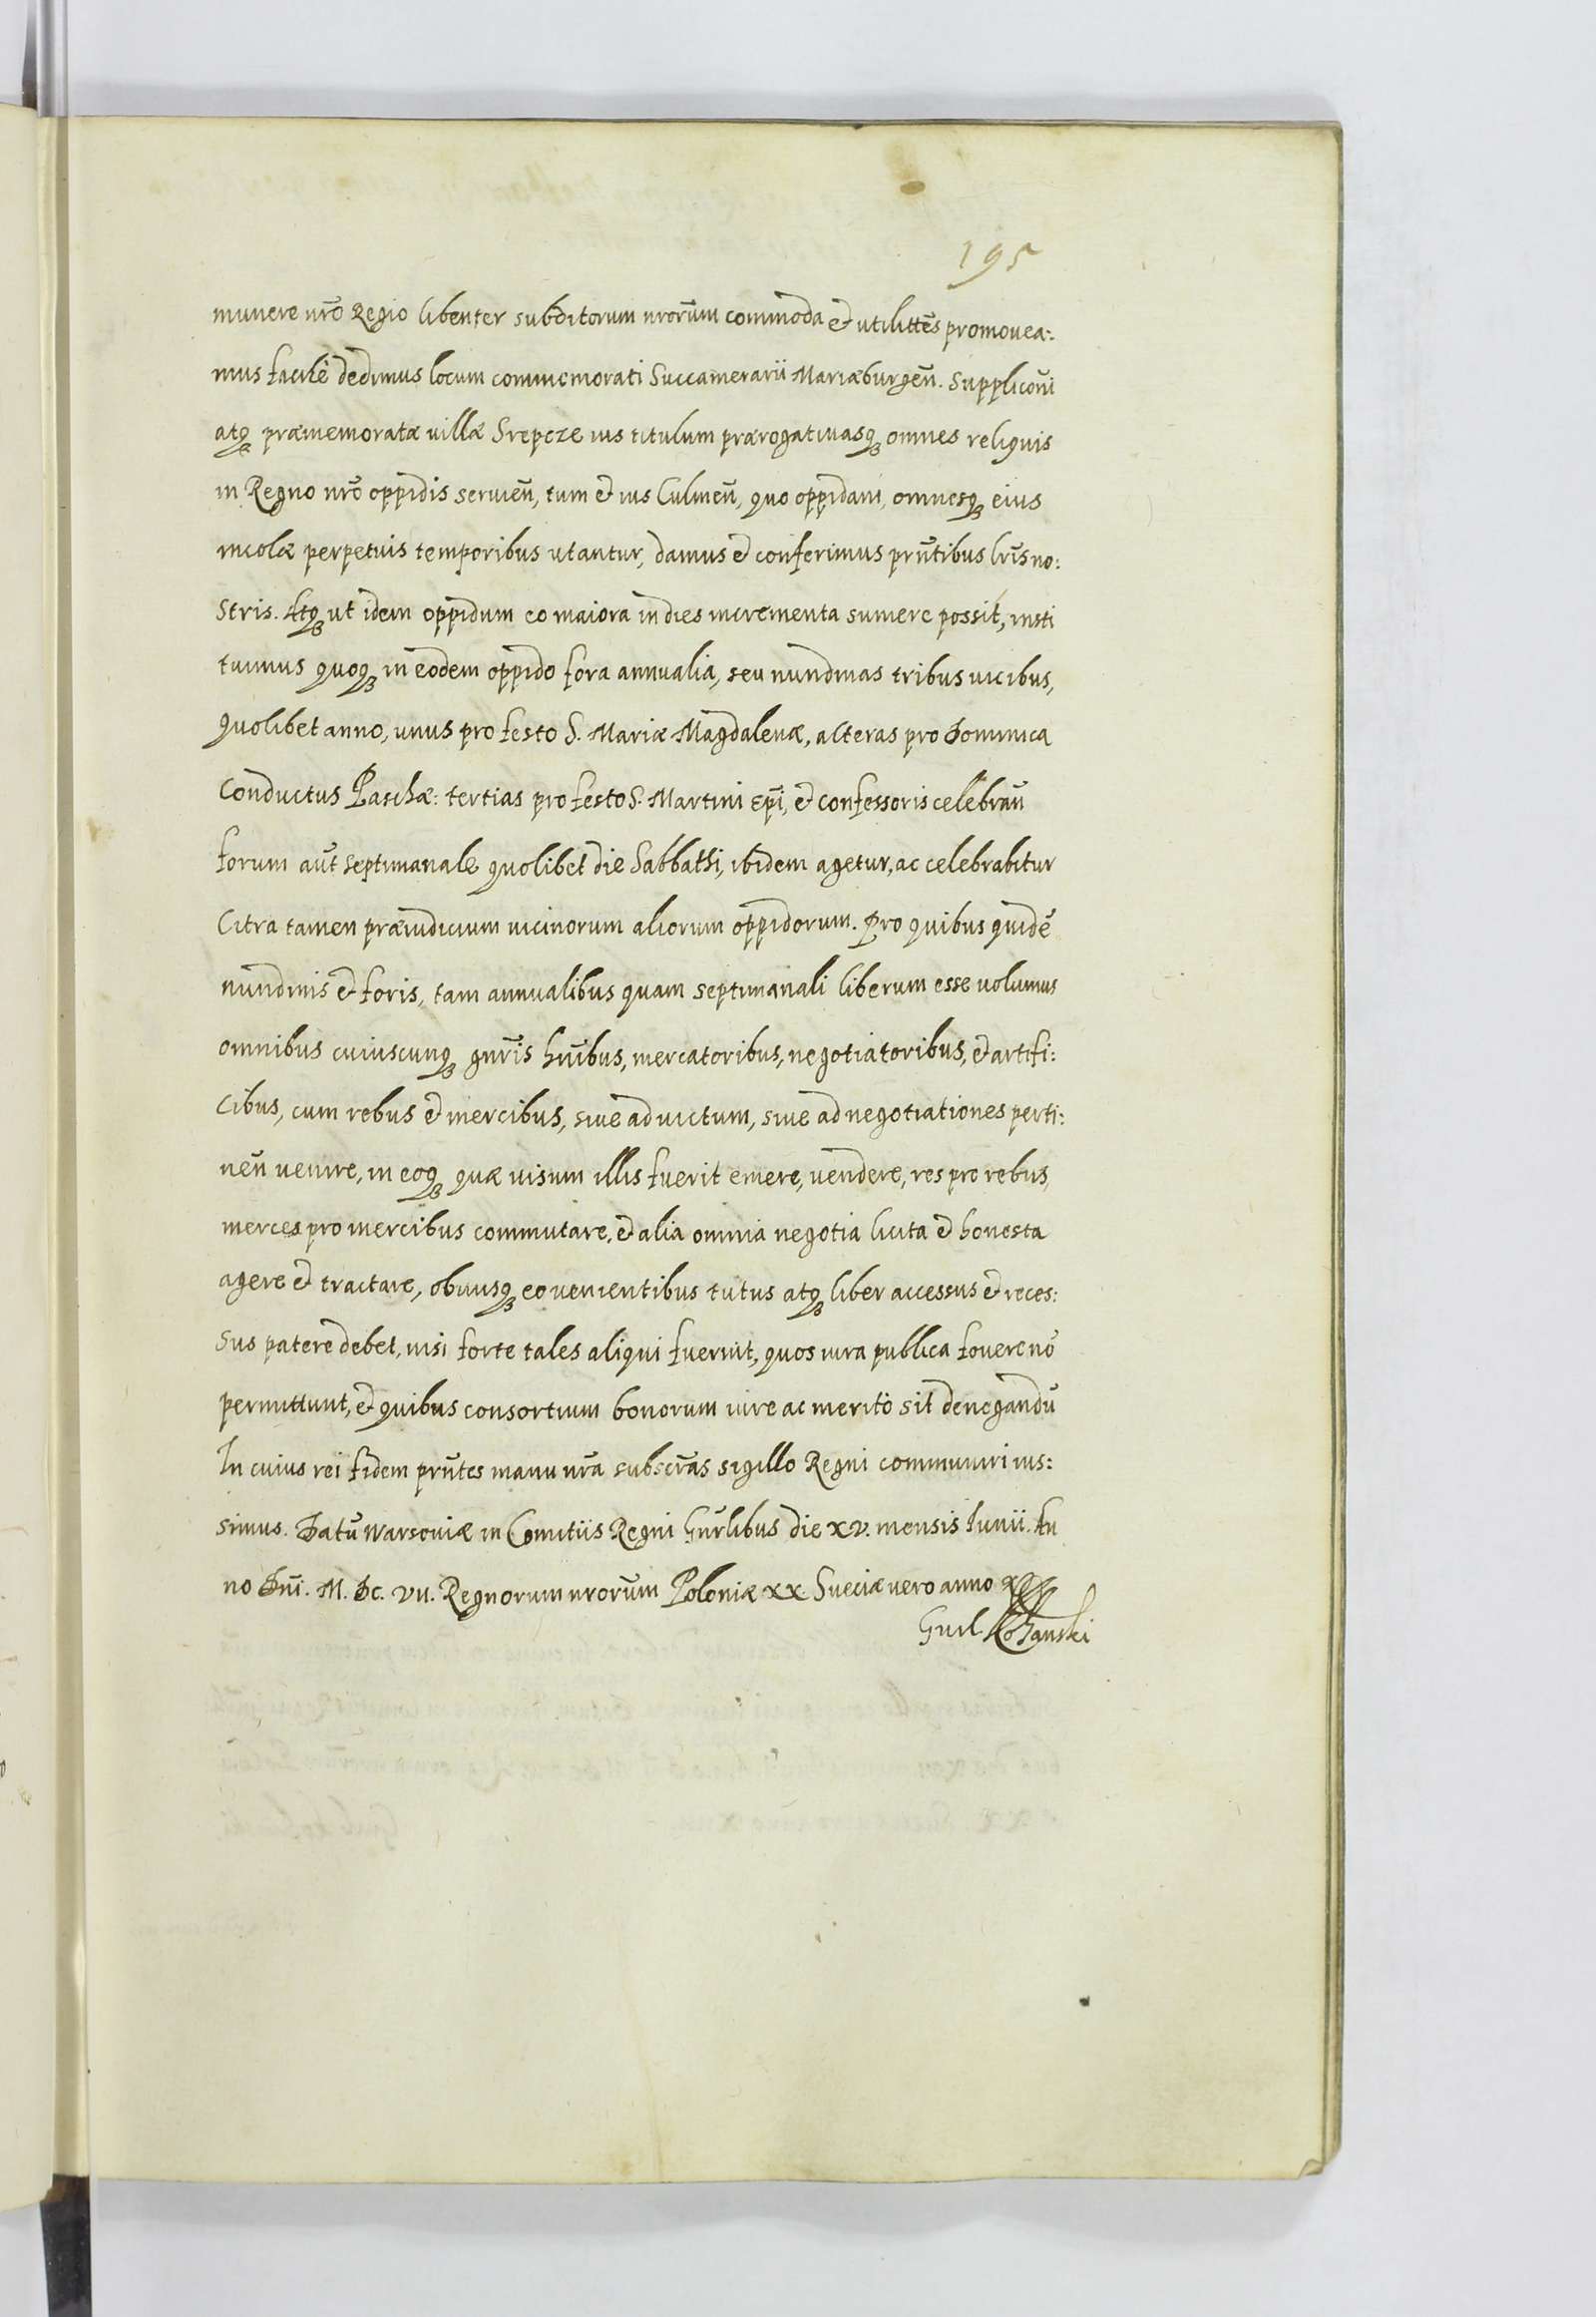 195
munere nr̃o Regio libenter subditorum nrorũm commoda et utilittẽs promovea:
mus facilè dedimus locum commemorati Succamerarii Mariæburgeñ. Suppliconi
atq præmemoratæ villæ Srepcze ius titulum prærogativasq omnes reliquis
in Regno nr̃o oppidis servieñ, tum et ius Culmeñ, quo oppidani, omnesq eius
incolæ perpetuis temporibus utantur, damus et conferimus pr̃ntibus lr̃is no:
stris. Atq ut idem oppidum eo maiora in dies incrementa sumere possit, insti
tuimus quoq in eodem oppido fora annualia, seu nundinas tribus vicibus,
quolibet anno, unus pro festo S. Mariæ Magdalenæ, alteras pro Dominica
Conductus Paschæ: tertias pro festo S. Martini Epĩ, et confessoris celebrañ
forum aũt septimanale quolibet die Sabbathi, ibidem agetur, ac celebrabitur
Citra tamen præiudicium vicinorum aliorum oppidorum. Pro quibus quidẽ
nundinis et foris, tam annualibus quam septimanali liberum esse volumus
omnibus cuiuscunq gnr̃is hñibus, mercatoribus, negotiatoribus, et artifi:
cibus, cum rebus et mercibus, sive ad victum, sive ad negotiationes perti:
neñ venire, in eoq quæ visum illis fuerit emere, vendere, res pro rebus,
merces pro mercibus commutare, et alia omnia negotia licita et honesta
agere et tractare, obiusq eo venientibus tutus atq liber accessus et reces:
sus patere debet, nisi forte tales aliqui fuerint, quos iura publica fovere nõ
permittunt, et quibus consortium bonorum iure ac meritò sit denegandũ
In cuius rei fidem prñtes manu nr̃a subscr̃as sigillo Regni communiri ius:
simus. Datũ Warsoviæ in Comitiis Regni Gnr̃libus die XV. mensis Iunii. An
no Dñi. M. DC. VII. Regnorum nrorũm Poloniæ XX. Sueciæ vero anno
Guil Kochanski